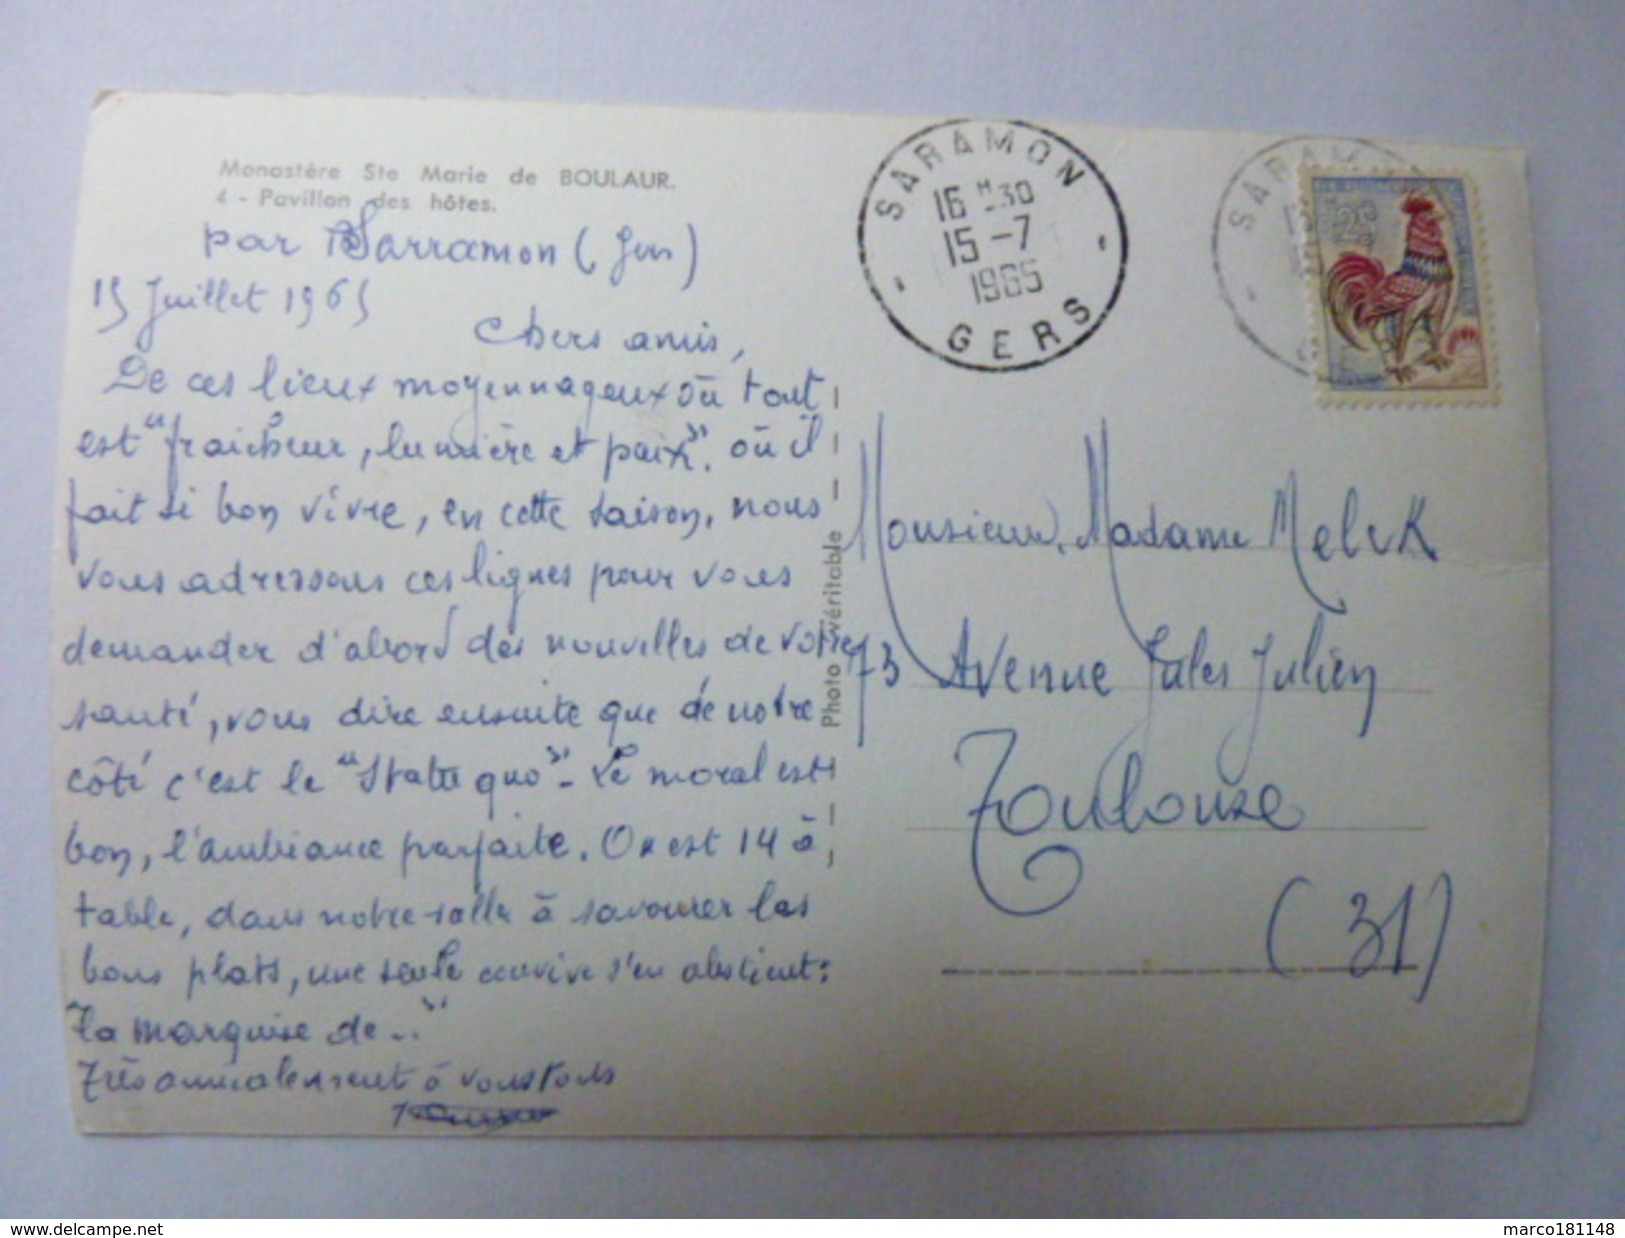 Monastère Ste Marie de BOULAUR.
4 - Pavillon des hôtes.
par Sarramon (Gers)
15 Juillet 1965
Chers amis,
De ces lieux moyennageux où tout
est "fraicheur, lumière et paix". où il
fait si bon vivre, en cette saison, nous
vous adressons ces lignes pour vous
demander d'abord des nouvelles de votre
santé, vous dire ensuite que de notre
côté c'est le "Statu quo" - Le moral est
bon, l'ambiance parfaite. On est 14 à
table, dans notre salle à savourer les
bons plats, une seule convive s'en abstient:
"la marquise de..."
Très amicalement à vous tous
Photo véritable
SARAMON
16 H 30
15 -7
1965
GERS
SARAMON
0,25
Monsieur, Madame Melik
73 Avenue Jules Julien
Toulouse
(31)
delcampe.net
marco181148